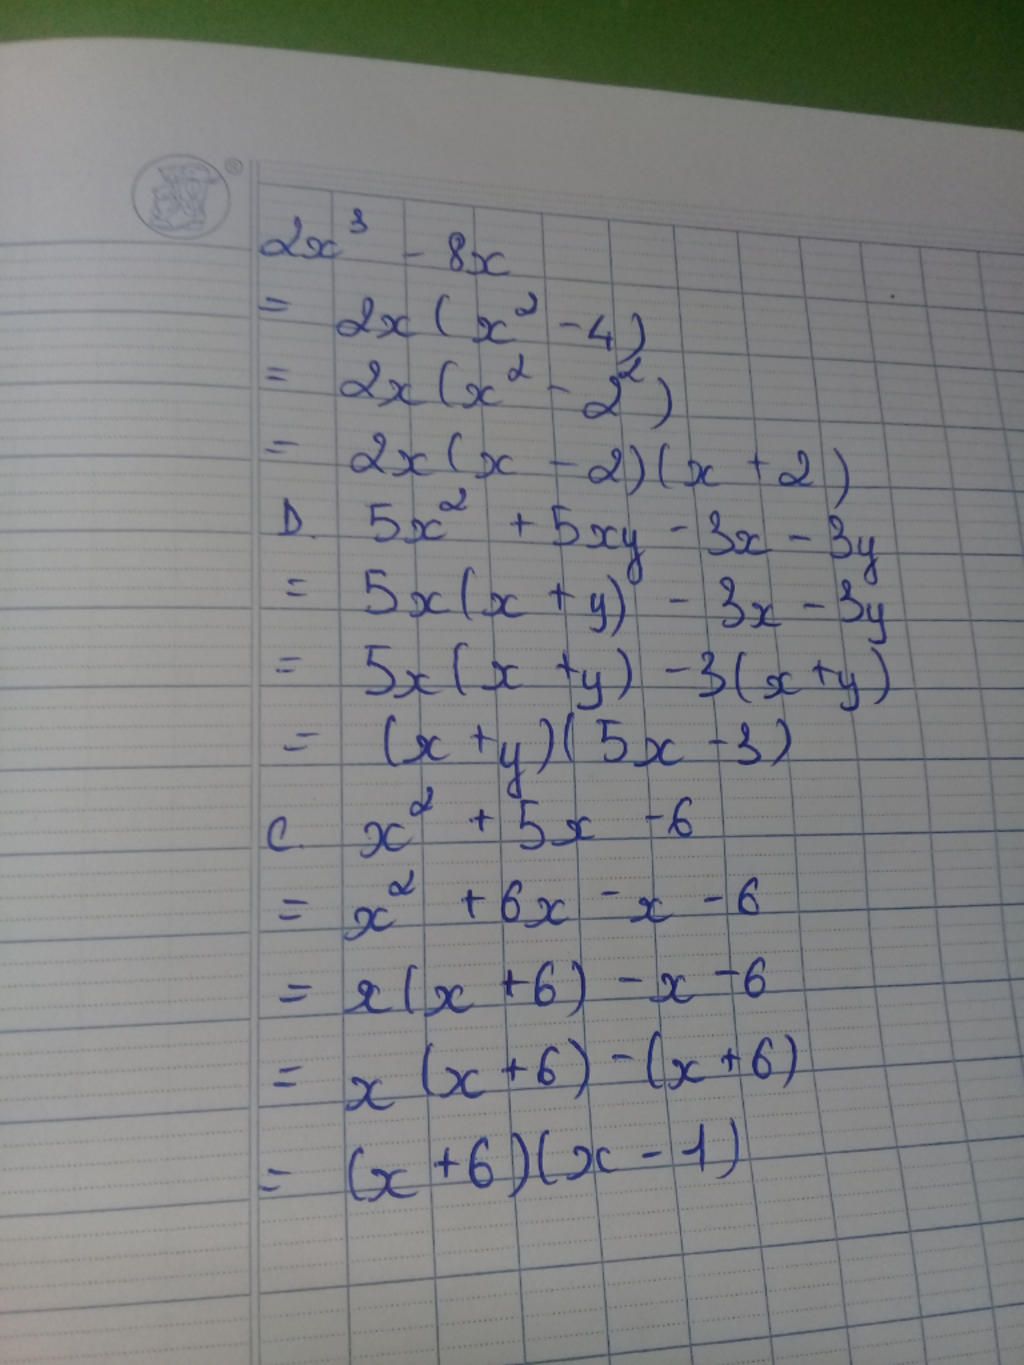 2x³ - 8x
= 2x(x² - 4)
= 2x(x² - 2²)
= 2x(x - 2)(x + 2)
D. 5x² + 5xy - 3x - 3y
= 5x(x + y) - 3x - 3y
= 5x(x + y) - 3(x + y)
= (x + y)(5x - 3)
C. x² + 5x - 6
= x² + 6x - x - 6
= x(x + 6) - x - 6
= x(x + 6) - (x + 6)
= (x + 6)(x - 1)